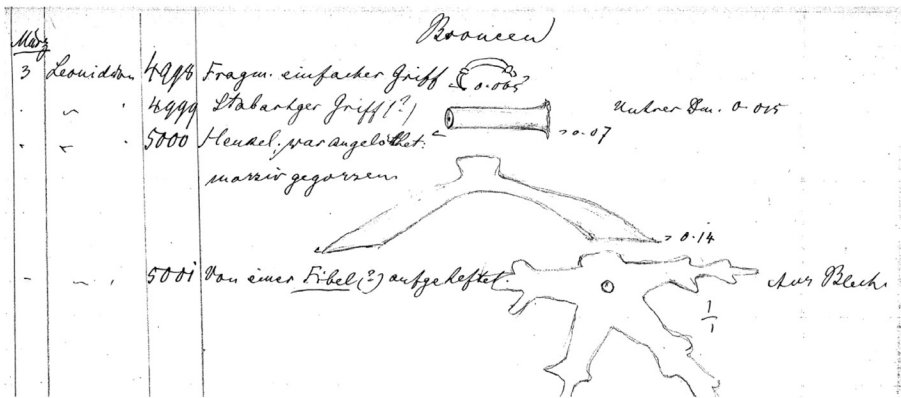 Broncen
März
3 Leonidaion 4998 Fragm. einfacher Griff 0.065
" " " 4999 Stabartger Griff (?) 0.07 Untrer Dm. 0.015
" " " 5000 Henkel, war angelöthet.
massiv gegossen
0.14
" " " 5001 Von einer Fibel (?) aufgeheftet. Aus Blech
1/1